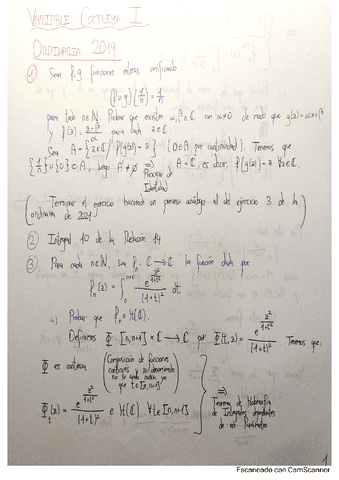 VARIABLE COMPLEJA I
ORDINARIA 2019
① Sean f,g funciones enteras verificando:
(f∘g)(1/n) = 1/n
para todo n∈ℕ. Probar que existen α,β∈ℂ con α≠0 de modo que g(z)=αz+β
y f(z)=(z-β)/α para cada z∈ℂ.
Sea A={z∈ℂ / f(g(z))=z} (0∈A por continuidad). Tenemos que
{1/n}∪{0}⊂A, luego A'≠∅ ⇒ A=ℂ, es decir, f(g(z))=z ∀z∈ℂ.
Principio de
Identidad
(Terminar el ejercicio haciendo un proceso análogo al del ejercicio 3 de la
ordinaria de 2021)
② Integral 10 de la Relación 14
③ Para cada n∈ℕ, sea fₙ: ℂ→ℂ la función dada por:
fₙ(z) = ∫ₙⁿ⁺¹ e^(z²/(1+t²))/(1+t)² dt
a) Probar que fₙ∈H(ℂ).
Definimos Φ: [n,n+1]×ℂ→ℂ por Φ(t,z) = e^(z²/(1+t²))/(1+t)². Tenemos que:
Φ es continua (Composición de funciones
continuas y el denominador
no se anula nunca ya
que t∈[n,n+1])
Φₜ(z) = e^(z²/(1+t²))/(1+t)² ∈ H(ℂ), ∀t∈[n,n+1]
⇒
Teorema de Holomorfía
de Integrales dependientes
de un Parámetro
1
Escaneado con CamScanner